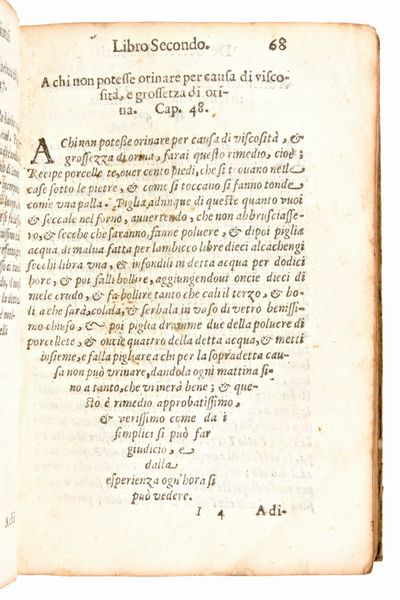 Libro Secondo. 68
A chi non potesse orinare per causa di visco-
sità, e grossetza di ori-
na. Cap. 48.
A Chi non poteße orinare per causa di viscosità, &
grossezza di orina, farai questo rimedio, cioè;
Recipe porcelle te, ouer cento piedi, che si t ouano nelle
case sotto le pietre, & come si toccano si fanno tonde
come vna palla. Piglia adunque di queste quanto vuoi
& seccale nel forno, auuertendo, che non abbrusciasse-
ro, & secche che saranno, fanne poluere, & dipoi piglia
acqua di malua fatta per lambicco libre dieci alcachengi
secchi libra vna, & infondili in detta acqua per dodici
hore, & poi falli bollire, aggiungendoui oncie dieci di
mele crudo, & fa bollire tanto che cali il terzo, & bo-
li a che sarà, colala, & serbala in vaso di vetro benissi-
mo chiuso, & poi piglia dramme due della poluere di
porcellete, & ontie quattro della detta acqua, & metti
insieme, e falla pigliare a chi per la sopradetta cau-
sa non può vrinare, dandola ogni mattina si-
no a tanto, che vrinerà bene; & que-
sto è rimedio approbatissimo,
& verissimo come da i
simplici si può far
giudicio, e
dalla
esperienza ogn'hora si
può vedere.
I 4 Adi-